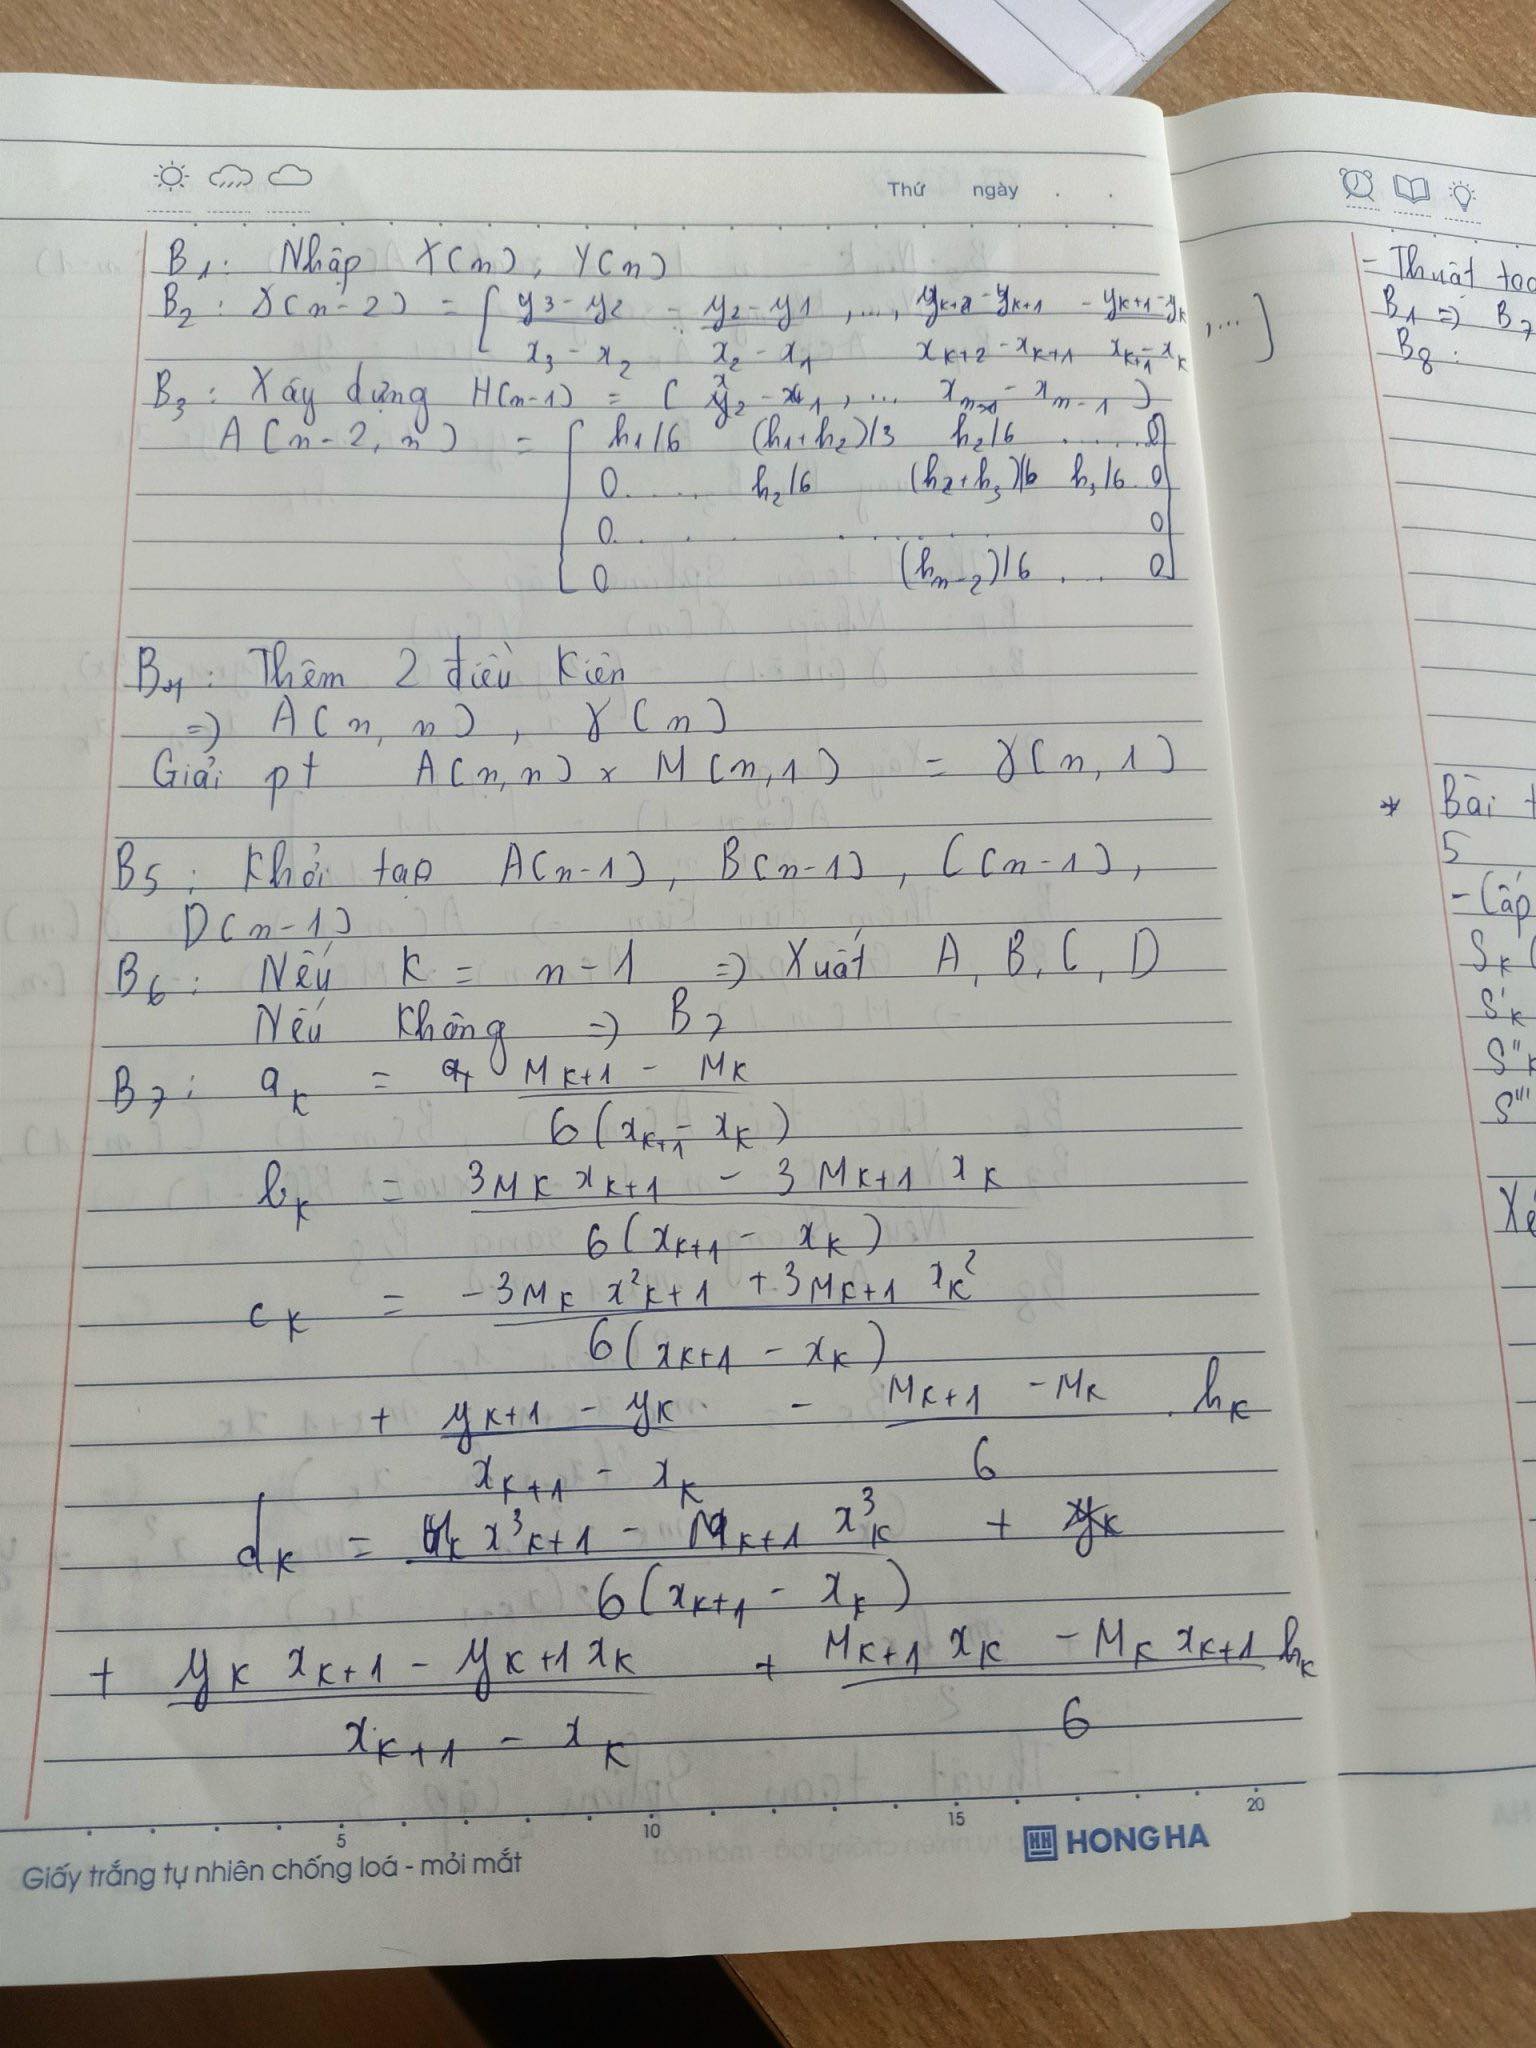 Thứ ngày . .
B1: Nhập X(n), Y(n)
B2: γ(n-2) = [ (y3 - y2)/(x3 - x2) - (y2 - y1)/(x2 - x1) , ..., (yk+2 - yk+1)/(xk+2 - xk+1) - (yk+1 - yk)/(xk+1 - xk) , ... ]
B3: Xây dựng H(n-1) = ( x2 - x1, ... xn - xn-1 )
A(n-2, n) = [ h1/6 (h1+h2)/3 h2/6 ..... 0
0 ..... h2/6 (h2+h3)/6 h3/6 . 0
0 ........... 0
0 (hn-2)/6 ... 0 ]
B4: Thêm 2 điều kiên
=> A(n, n), γ(n)
Giải pt A(n,n) x M(n,1) = γ(n,1)
B5: Khởi tạo A(n-1), B(n-1), C(n-1),
D(n-1)
B6: Nếu K = n-1 => Xuất A, B, C, D
Nếu không => B7
B7: ak = (Mk+1 - Mk)/(6(xk+1 - xk))
bk = (3Mk xk+1 - 3Mk+1 xk)/(6(xk+1 - xk))
ck = (-3Mk x²k+1 + 3Mk+1 xk²)/(6(xk+1 - xk))
+ (yk+1 - yk)/(xk+1 - xk) - (Mk+1 - Mk)/6 . hk
dk = (Mk x³k+1 - Mk+1 x³k)/(6(xk+1 - xk)) +
+ (yk xk+1 - yk+1 xk)/(xk+1 - xk) + (Mk+1 xk - Mk xk+1)/6 hk
5 10 15 20
Giấy trắng tự nhiên chống loá - mỏi mắt
HH HONG HA
- Thuật toá
B1 => B7
B8:
* Bài t
5
- Cấp
Sk (
S'k
S''k
S'''
Xé